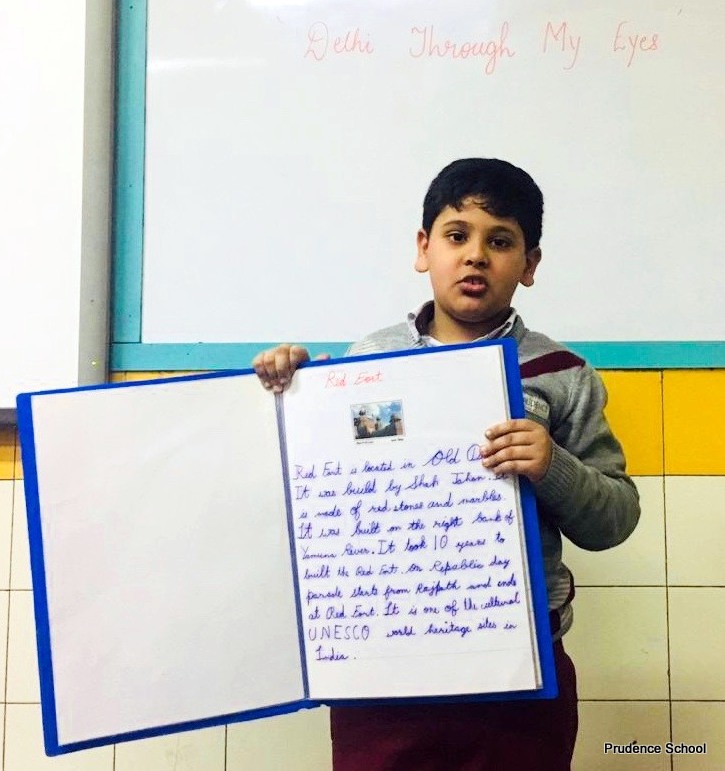 Delhi Through My Eyes
Red Fort
Red Fort is located in Old
It was build by Shah Jahan. It
is made of red stones and marbles.
It was built on the right bank of
Yamuna River. It took 10 years to
built the Red Fort. On Republic day
parade starts from Rajpath and ends
at Red Fort. It is one of the cultural
UNESCO world heritage sites in
India.
Prudence School